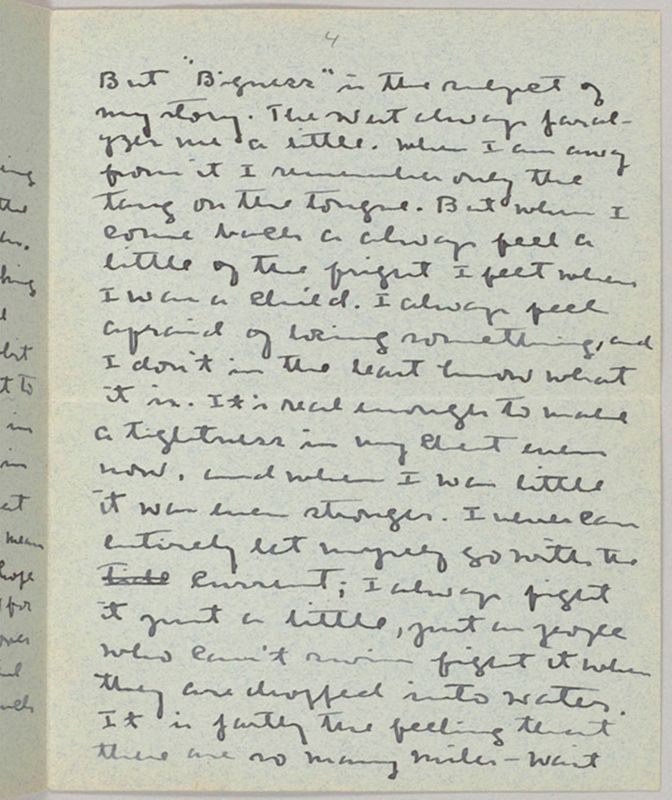 4
But "Bigness" is the subject of
my story. The West always paral-
yzes me a little. When I am away
from it I remember only the
tang on the tongue. But when I
come back a always feel a
little of the fright I felt when
I was a child. I always feel
afraid of losing something, and
I don't in the least know what
it is. It's real enough to make
a tightness in my chest even
now, and when I was little
it was even stronger. I never can
entirely let myself go with the
tide current; I always fight
it just a little, just as people
who can't swim fight it when
they are dropped into water.
It is partly the feeling that
there are so many miles—wait
ing
the
king
t to
in
in
at
mean
hope
for